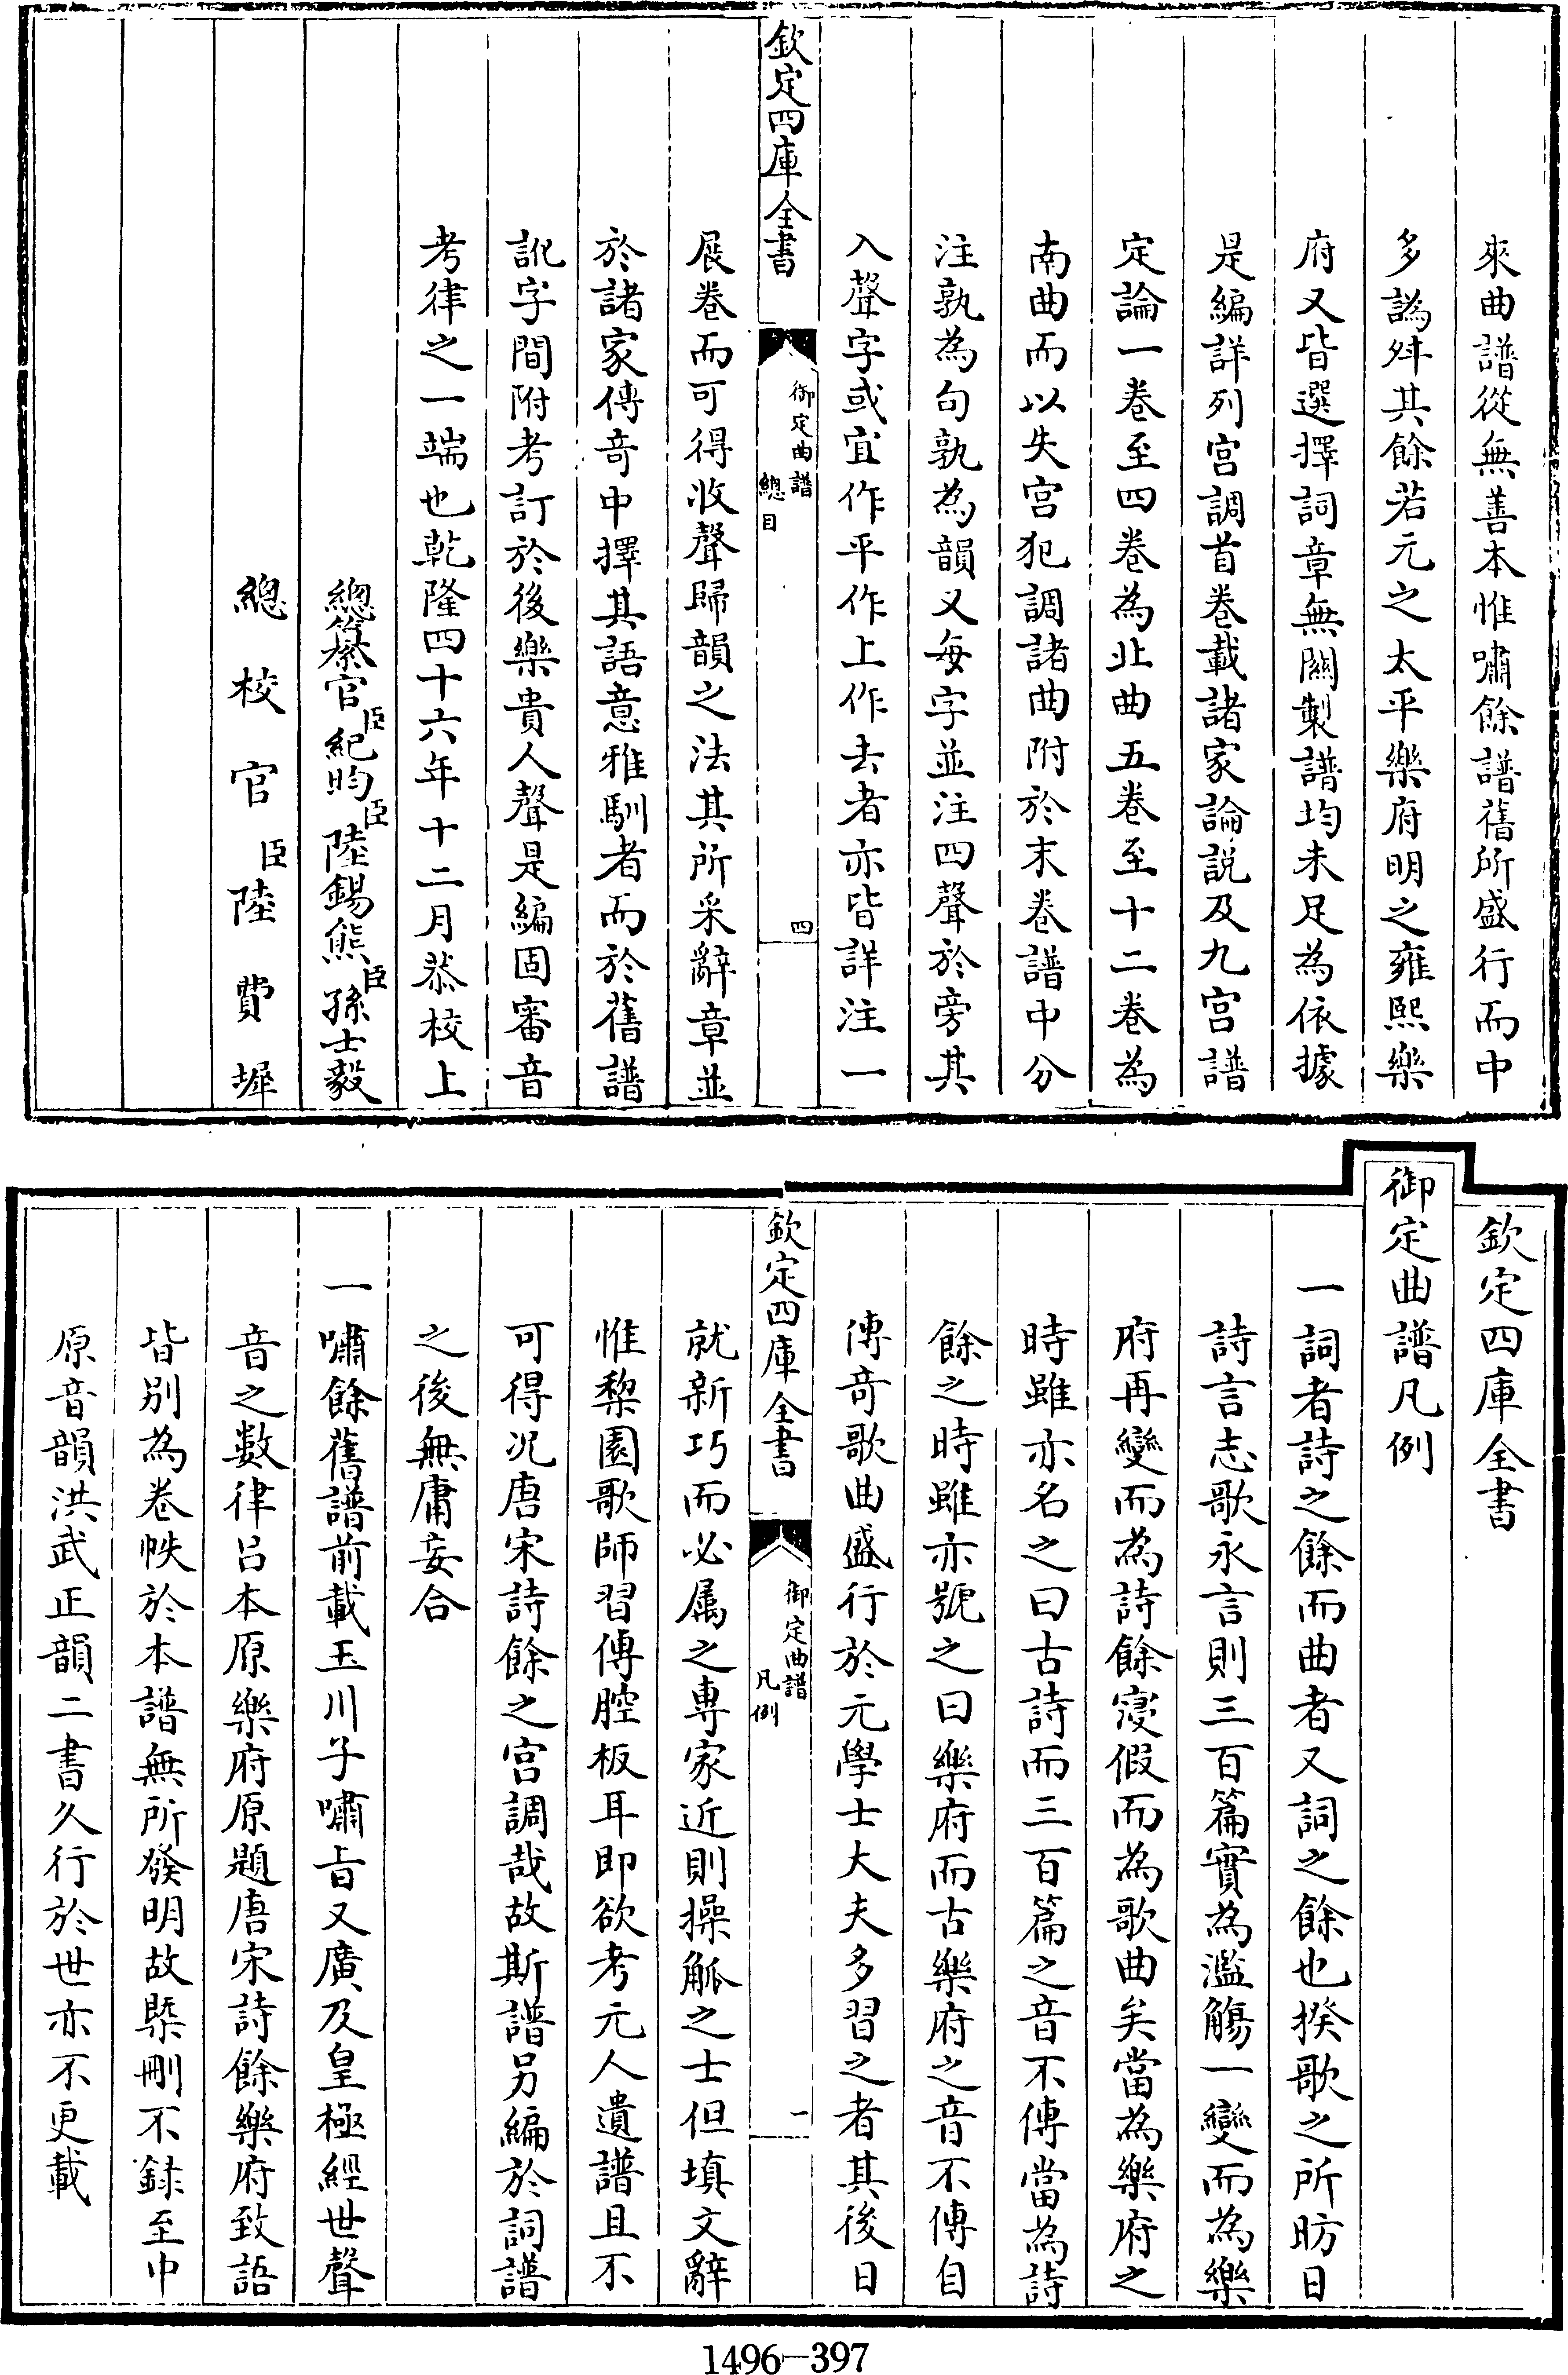 來曲譜從無善本惟嘯餘譜舊所盛行而中
多譌舛其餘若元之太平樂府明之雍熙樂
府又皆選擇詞章無關製譜均未足為依據
是編詳列宫調首卷載諸家論説及九宫譜
定論一卷至四卷為北曲五卷至十二卷為
南曲而以失宫犯調諸曲附於末卷譜中分
注孰為句孰為韻又每字並注四聲於旁其
入聲字或宜作平作上作去者亦皆詳注一
欽定四庫全書
御定曲譜
總目
四
展卷而可得收聲歸韻之法其所采辭章並
於諸家傳竒中擇其語意雅馴者而於舊譜
訛字間附考訂於後樂貴人聲是編固審音
考律之一端也乾隆四十六年十二月恭校上
總纂官臣紀昀臣陸錫熊臣孫士毅
總校官臣陸費墀
欽定四庫全書
御定曲譜凡例
一詞者詩之餘而曲者又詞之餘也揆歌之所昉曰
詩言志歌永言則三百篇實為濫觴一變而為樂
府再變而為詩餘寖假而為歌曲矣當為樂府之
時雖亦名之曰古詩而三百篇之音不傳當為詩
餘之時雖亦號之曰樂府而古樂府之音不傳自
傳竒歌曲盛行於元學士大夫多習之者其後日
欽定四庫全書
御定曲譜
凡例
一
就新巧而必属之專家近則操觚之士但填文辭
惟棃園歌師習傳腔板耳即欲考元人遺譜且不
可得况唐宋詩餘之宫調哉故斯譜另編於詞譜
之後無庸妄合
一嘯餘舊譜前載玉川子嘯旨又廣及皇極經世聲
音之數律吕本原樂府原題唐宋詩餘樂府致語
皆别為卷帙於本譜無所發明故槩刪不録至中
原音韻洪武正韻二書久行於世亦不更載
1496-397